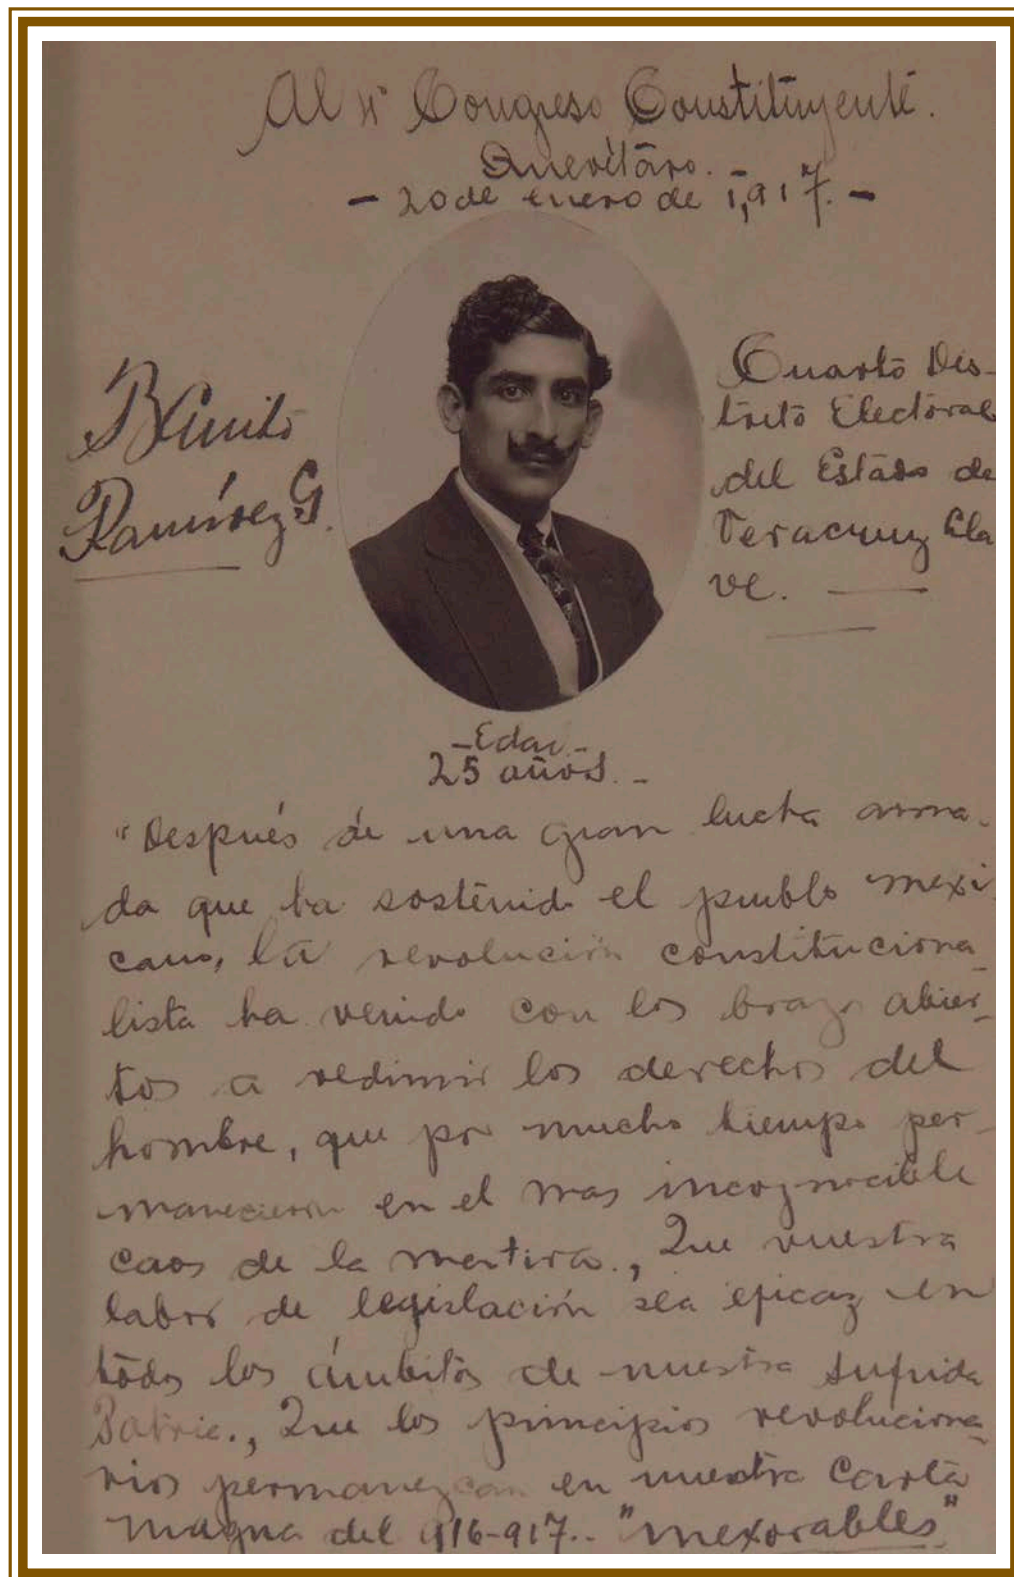 Al H. Congreso Constituyente.
Querétaro.
- 20 de enero de 1,917. -
Benito
Ramírez G.
Cuarto Dis-
trito Electoral
del Estado de
Veracruz Lla
ve.
- Edad -
25 años. -
"Después de una gran lucha arma-
da que ha sostenido el pueblo mexi
cano, la revolución constituciona-
lista ha venido con los brazos abier-
tos a redimir los derechos del
hombre, que por mucho tiempo per-
manecieron en el mas incognocible
caos de la mentira., Que vuestra
labor de legislación sea eficaz en
todos los ámbitos de nuestra sufrida
Patria., Que los principios revoluciona-
rios permanezcan en nuestra Carta
magna del 916-917.. "inexorables"